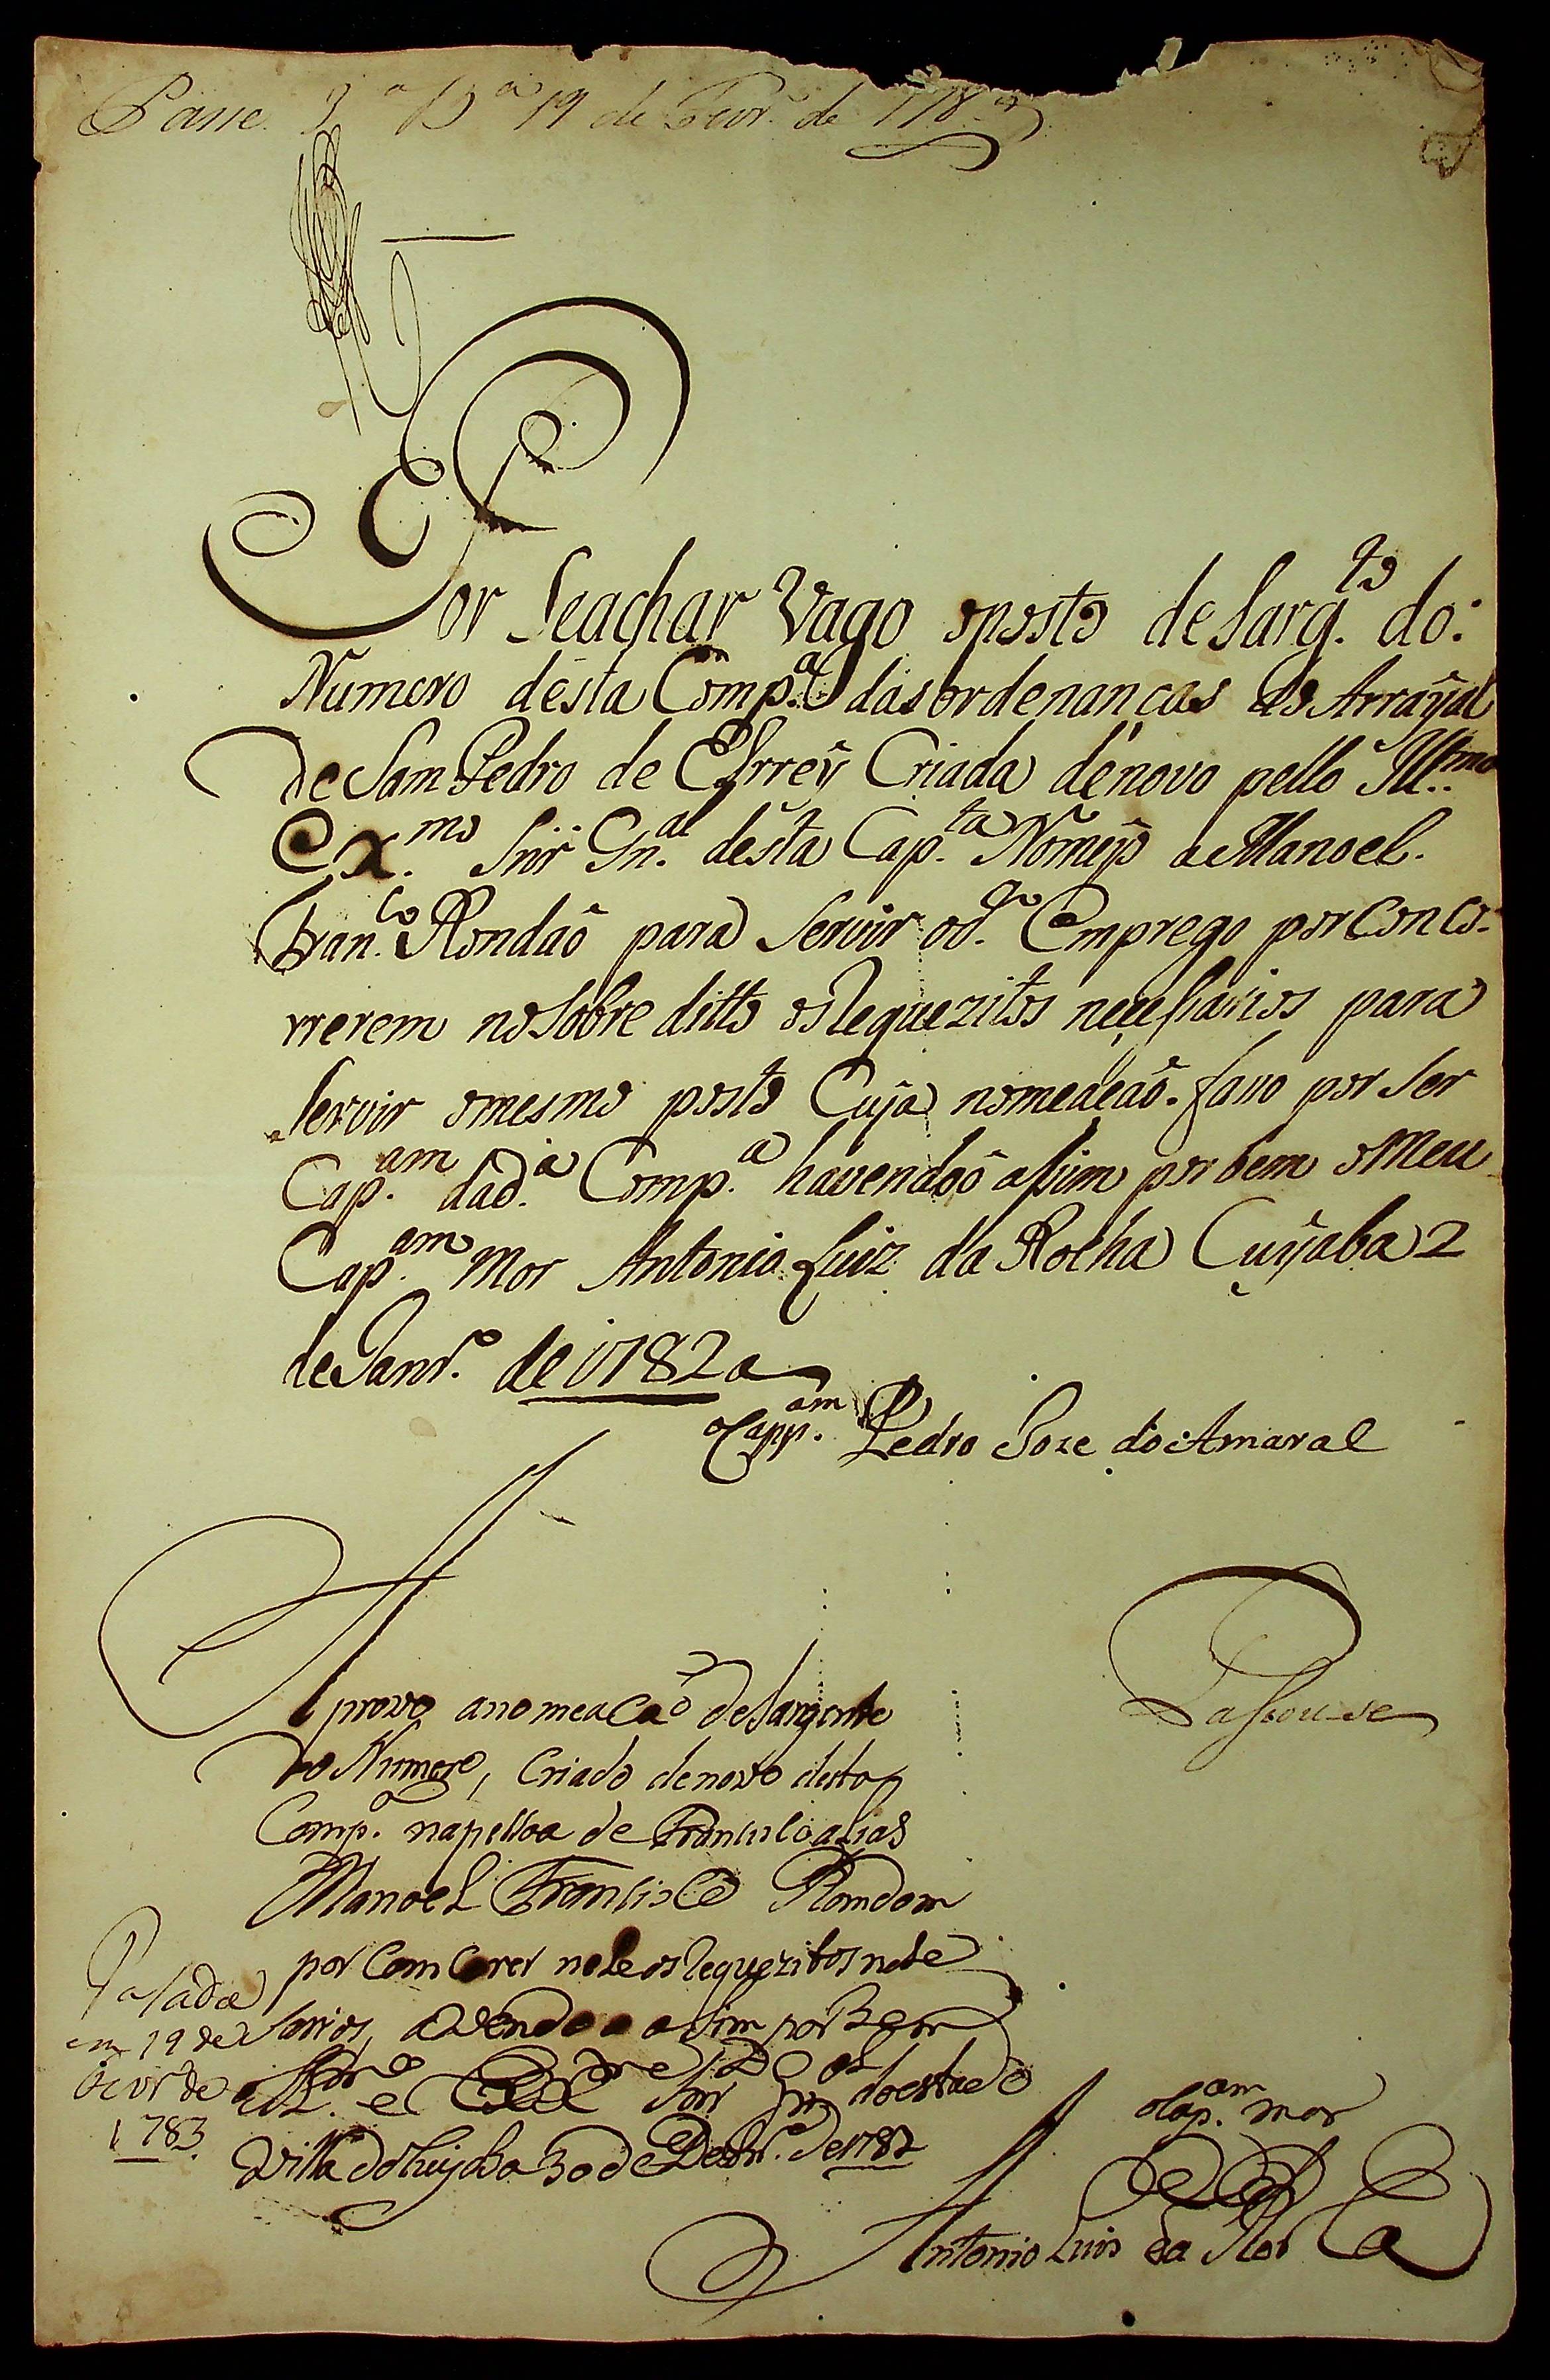 Passe. 3.ª V.ª 19 de Fevr.º de 178
Por Seachar Vago oposto deSarg.to do.
Numero desta Comp.ª dasordenancas do Arrayal
De Sam Pedro de ElRrey Criada denovo pello Ill.mo
Ex.mo Snr Gn.al desta Cap.ta Nomeyo a Manoel.
Fran.co Rondaõ para Servir od.º Emprego por Conco-
rrerem noSobre ditto osRequezitos necessarios para
Servir omesmo posto Cuja nomeaçaõ. fasso por Ser
Cap.am dad.ª Comp.ª havendoo assim por bem oMeu
Cap.am Mor Antonio Luiz da Rocha Cuyaba 2
deJanr.º de 1782a
oCapp.am Pedro Joze do Amaral
Aprovo anomeaçaõ deSargento
do Numero, Criado denovo desta
Comp.ª napessoa de Francisco alias
Manoel Francisco Romdom
por Comcorer nele osRequezitos nese
sarios, avendoo asim por Bem
oIll.mo e Snr Gn.al doestado
Villa doCuyaba 30 deDezbr.º de1782
Passou-se
Pasada
em 19 de
Fevr de
1783.
oCap.am mor
Antonio Luis da Rocha